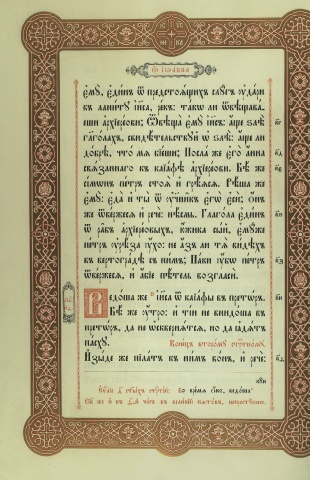 Ѿ іѡанна
є҆мꙋ̀, є҆ди́нъ ѿ предстоѧ́щихъ слꙋ́гъ ᲂу҆да́ри
въ лани́тꙋ і҆и҃са, ре́къ: та́кѡ ли ѿвѣщава́-
еши а҆рхїере́ови; Ѿвѣща̀ є҆мꙋ̀ і҆и҃съ: а҆́ще ѕлѣ̀
гл҃го́лахъ, свидѣ́тельствꙋй ѡ҆ ѕлѣ̀: а҆́ще ли
до́брѣ, что́ мѧ бїе́ши; Посла́ же є҆го̀ а҆́нна
свѧ́зана къ каїа́фѣ а҆рхїере́ови. Бѣ́ же
сі́мѡнъ пе́тръ стоѧ̀ и҆ грѣ́ѧсѧ. Рѣ́ша же
є҆мꙋ̀: є҆да̀ и҆ ты̀ ѿ ᲂу҆чн҃къ є҆гѡ̀ є҆сѝ; ѻ҆́нъ
же ѿве́ржесѧ и҆ речѐ: нѣ́смь. Глаго́ла є҆ди́нъ
ѿ ра̑бъ а҆рхїере́овыхъ, ю҆́жика сы́й, є҆мꙋ́же
пе́тръ ᲂу҆рѣ́за ᲂу҆́хо: не а҆́зъ ли тѧ̀ ви́дѣхъ
въ вертогра́дѣ съ ни́мъ; Па́ки ᲂу҆̀бо пе́тръ
ѿве́ржесѧ, и҆ а҆́бїе пѣ́тель возгласѝ.
Ведо́ша же і҆и҃са ѿ каїа́фы въ претѡ́ръ.
Бѣ́ же ᲂу҆́тро: и҆ ті́и не внидо́ша въ
претѡ́ръ, да не ѡ҆сквернѧ́тсѧ, но да ꙗ҆дѧ́тъ
па́схꙋ. Коне́цъ второ́мꙋ стрⷭ҇тномꙋ.
И҆зы́де же піла́тъ къ ни̑мъ во́нъ, и҆ речѐ:
Є҆ѵⷢ҇лїе д҃ ст҃ы́хъ стрⷭ҇те́й: Во вре́мѧ ѻ҆́но, ведо́ша